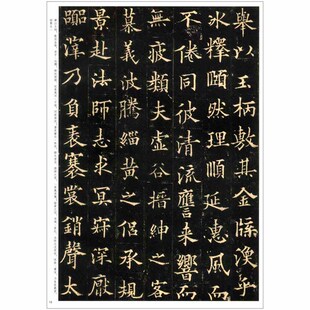 舉以玉柄敷其金牒渙乎
冰釋頤然理順延惠風而
不倦同彼清流應來響而
無疲類夫虛谷搢紳之客
慕義波騰緇黃之侶承規
景赴法師志求冥寂深厭
囂滓乃負袠褰裳銷聲太